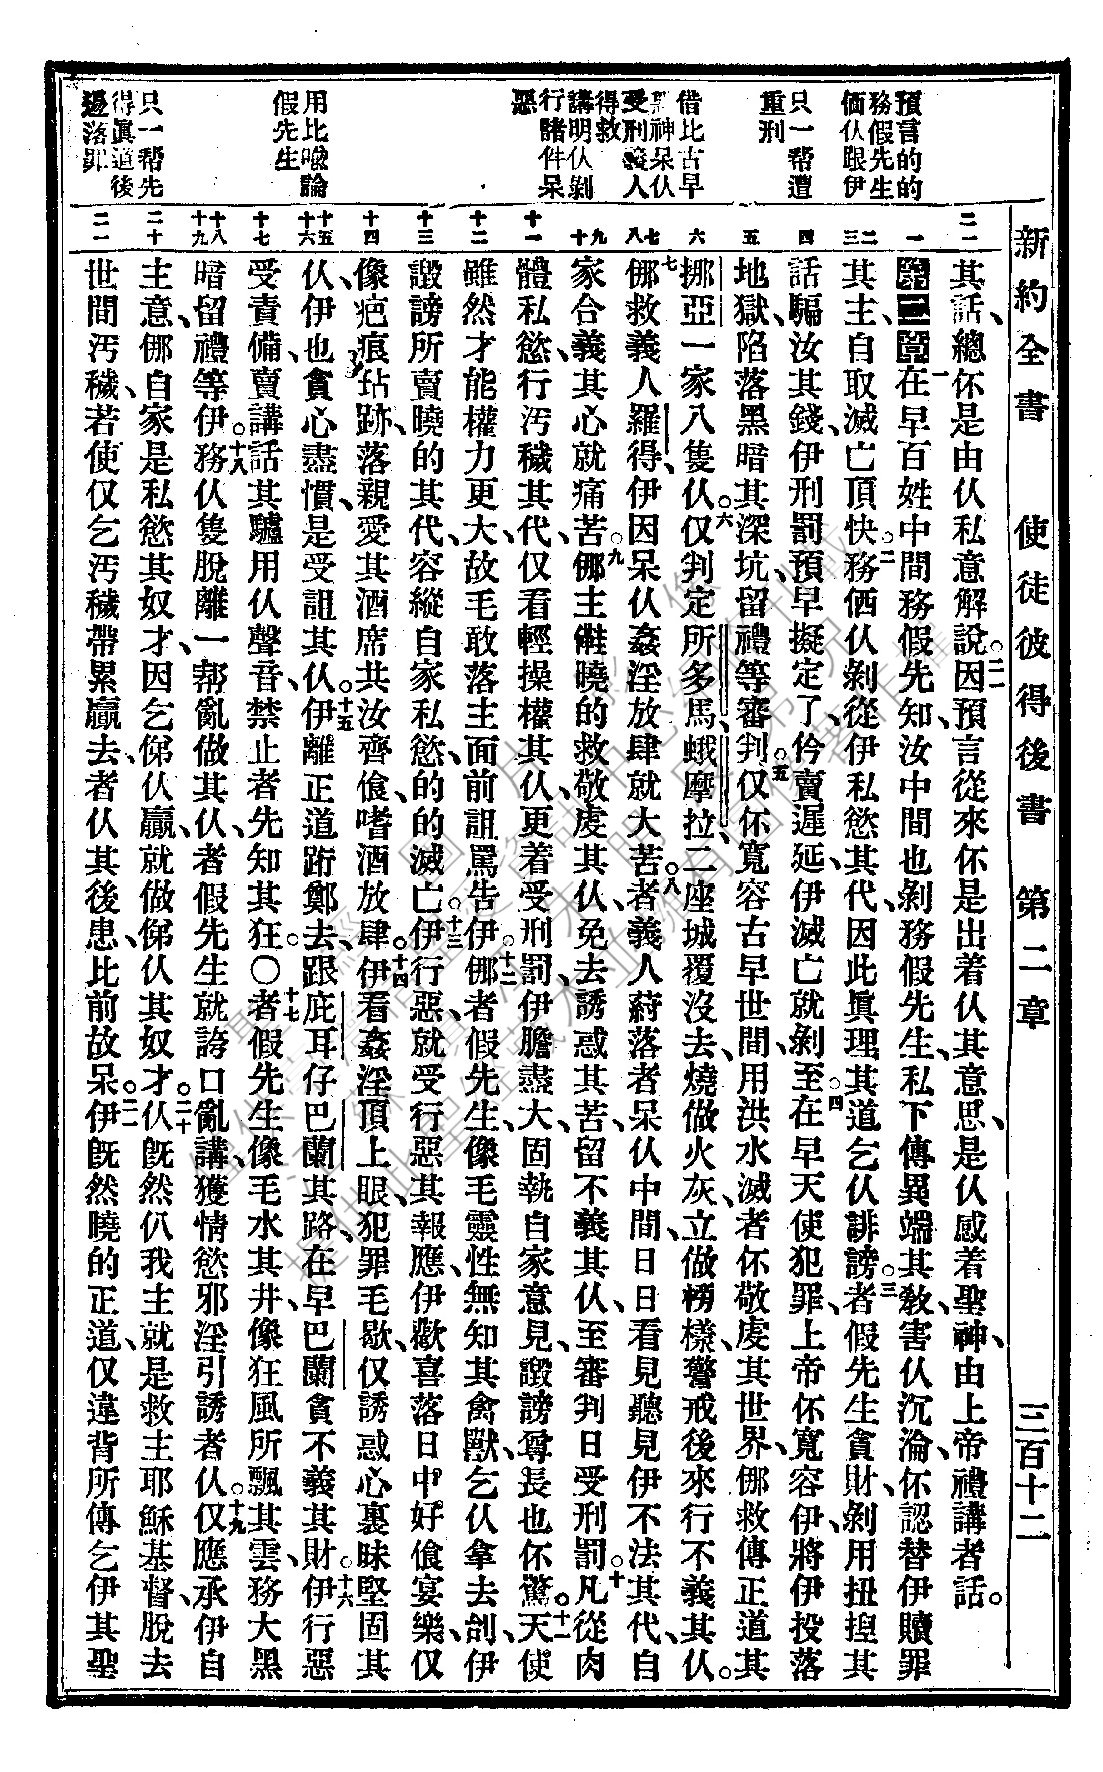 新約全書　使徒彼得後書　第二章　三百十二
預言的的
務假先生
価仈跟伊
只一帮遭
重刑
借比古早
惡神呆仈
受刑義人
得救
講明仈剝
行諸件呆
惡
用比喻論
假先生
只一帮先
得眞道後
邊落罪
二一
一
二三
四
五
六
七八
九十
十一
十二
十三
十四
十五十六
十七
十八十九
二十
二一
其話、總伓是由仈私意解說。二一因預言從來伓是出着仈其意思、是仈感着聖神、由上帝禮講者話。
第二章一在早百姓中間務假先知、汝中間也剝務假先生、私下傳異端其敎、害仈沉淪、伓認替伊贖罪
其主、自取滅亡頂快。二務価仈剝從伊私慾其代、因此眞理其道乞仈誹謗。三者假先生貪財、剝用揑其
話騙汝其錢、伊刑罰預早擬定了、伓賣遲延、伊滅亡就剝至。四在早天使犯罪、上帝伓寬容伊、將伊投落
地獄、陷落黑暗其深坑、留禮等審判。五仅伓寬容古早世間、用洪水滅者伓敬虔其世界、㑚救傳正道其
挪亞一家八隻仈。六仅判定所多馬、蛾摩拉、二座城覆沒去、燒做火灰、立做榜樣、警戒後來行不義其仈。
七㑚救義人羅得、伊因呆仈姦淫放肆就大苦。八者義人蹛落者呆仈中間、日日看見聽見伊不法其代、自
家合義其心就痛苦。九㑚主儘曉的救敬虔其仈免去誘惑其苦、留不義其仈、至審判日受刑罰。十凡從肉
體私慾、行汚穢其代、仅看輕操權其仈、更着受刑罰、伊膽盡大、固執自家意見、譭謗尊長也伓驚。十一天使
雖然才能權力更大、故毛敢落主面前詛罵告伊。十二㑚者假先生、像毛靈性無知其禽獸、乞仈拿去刣、伊
譭謗所賣曉的其代、容縱自家私慾、的的滅亡。十三伊行惡、就受行惡其報應、伊歡喜落日中好飧宴樂、仅
像疤痕玷跡、落親愛其酒席共汝齊飧、嗜酒放肆。十四伊看姦淫頂上眼、犯罪毛歇、仅誘惑心裏昧堅固其
仈、伊也貪心盡慣、是受詛其仈。十五伊離正道跻鄭去、跟庇耳仔巴蘭其路、在早巴蘭貪不義其財。十六伊行惡
受責備、賣講話其驢用仈聲音、禁止者先知其狂。〇十七者假先生像毛水其井、像狂風所飄其雲、務大黑
暗留禮等伊。十八伊務仈隻脫離一帮亂做其仈、者假先生就誇口亂講、獲情慾邪淫、引誘者仈。十九仅應承伊自
主意、㑚自家是私慾其奴才、因乞俤仈贏、就做俤仈其奴才。二十仈旣然仈我主就是救主耶穌基督、脫去
世間汚穢、若使仅乞汚穢帶累贏去、者仈其後患、比前故呆。二一伊旣然曉的正道、仅違背所傳乞伊其聖